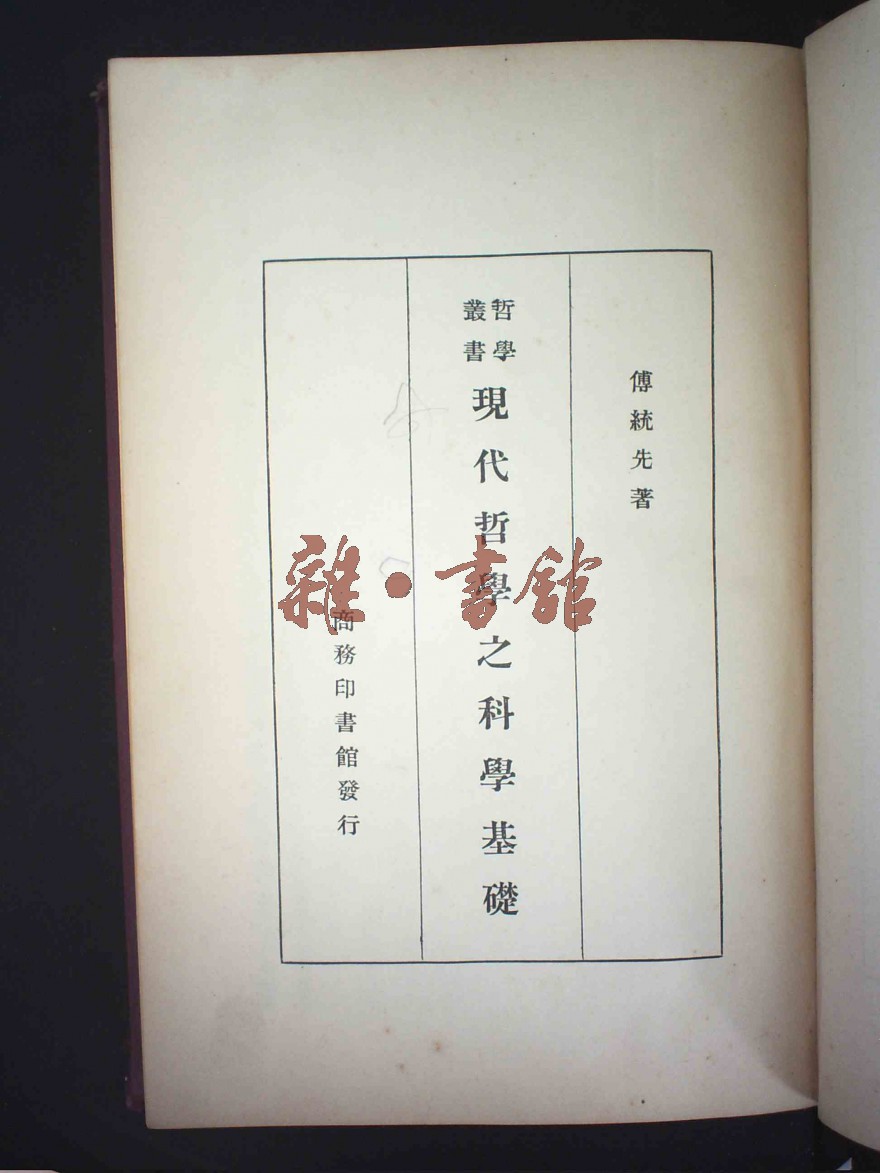 傅統先著
哲學
叢書
現代哲學之科學基礎
商務印書館發行
雜·書館